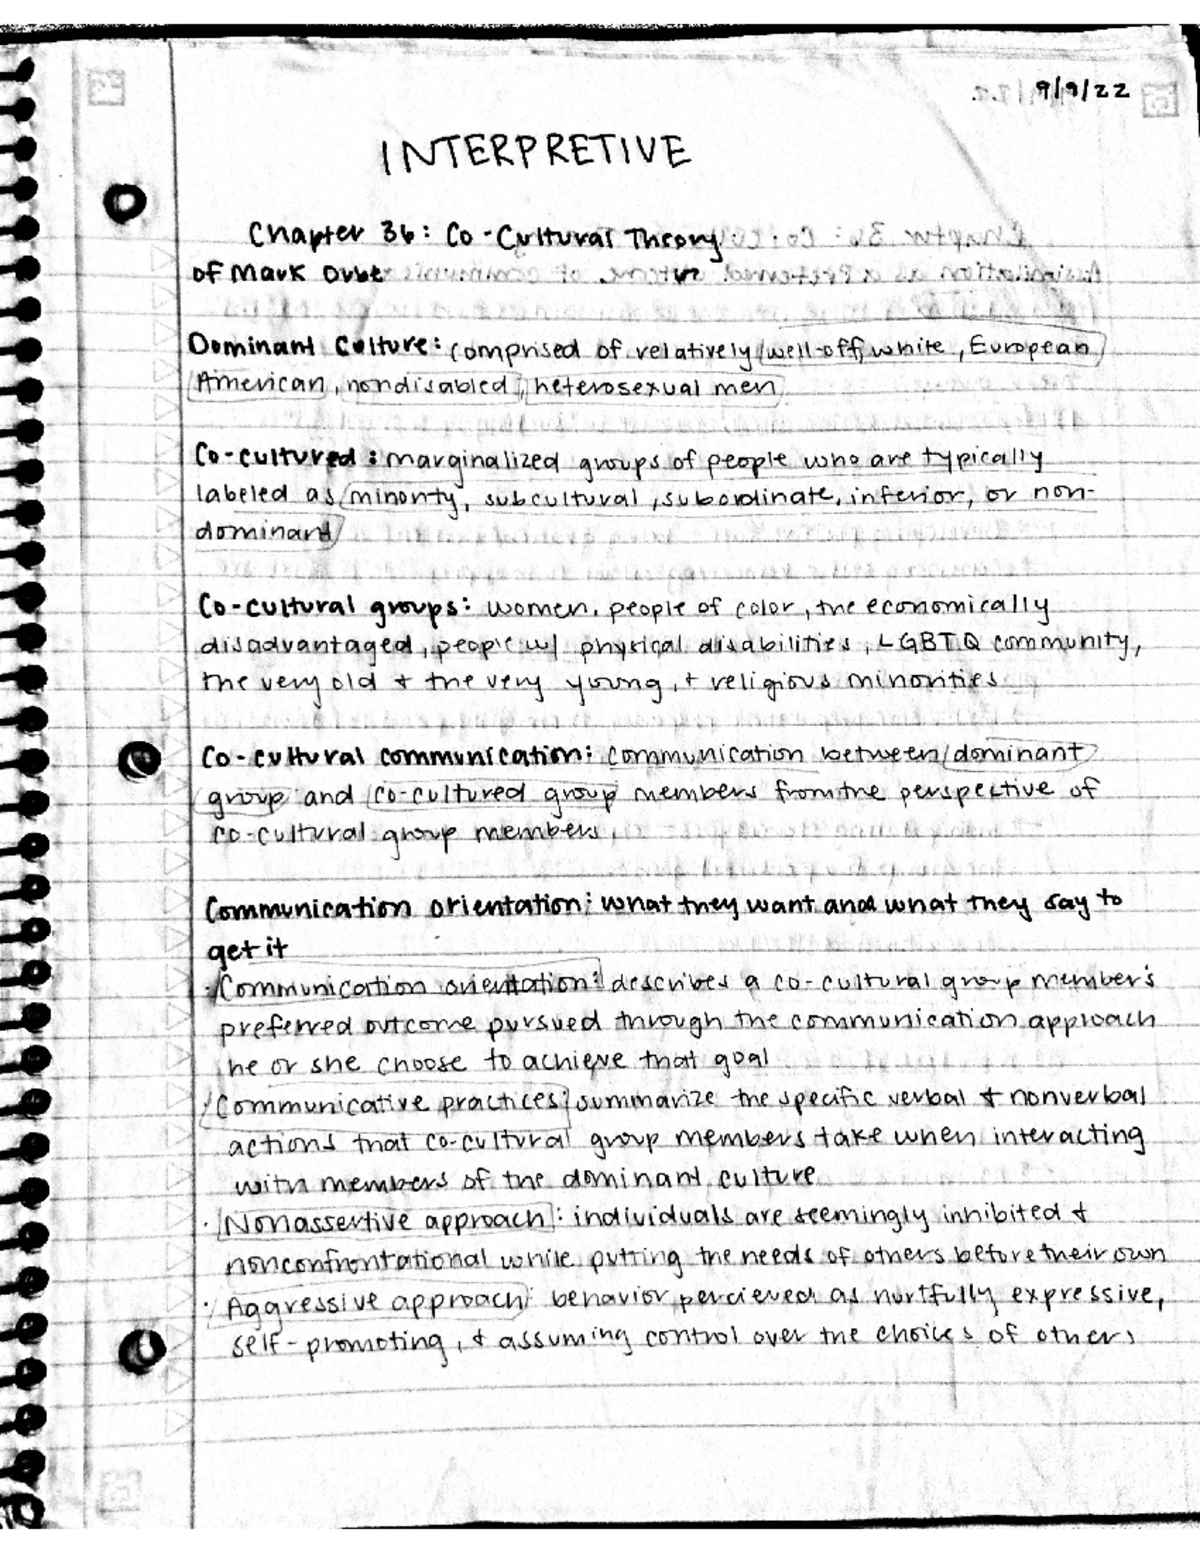 9/9/22
INTERPRETIVE
Chapter 36: Co-Cultural Theory
of Mark Orbe
Dominant Culture: comprised of relatively well-off, white, European
American, nondisabled, heterosexual men
Co-cultured: marginalized groups of people who are typically
labeled as minority, subcultural, subordinate, inferior, or non-
dominant
Co-cultural groups: women, people of color, the economically
disadvantaged, people w/ physical disabilities, LGBTQ community,
the very old + the very young, + religious minorities
Co-cultural communication: communication between dominant
group and co-cultured group members from the perspective of
co-cultural group members
Communication orientation: what they want and what they say to
get it
· Communication orientation: describes a co-cultural group member's
preferred outcome pursued through the communication approach
he or she choose to achieve that goal
· Communicative practices: summarize the specific verbal + nonverbal
actions that co-cultural group members take when interacting
with members of the dominant culture
· Nonassertive approach: individuals are seemingly inhibited +
nonconfrontational while putting the needs of others before their own
· Aggressive approach: behavior percieved as hurtfully expressive,
self-promoting, + assuming control over the choices of others